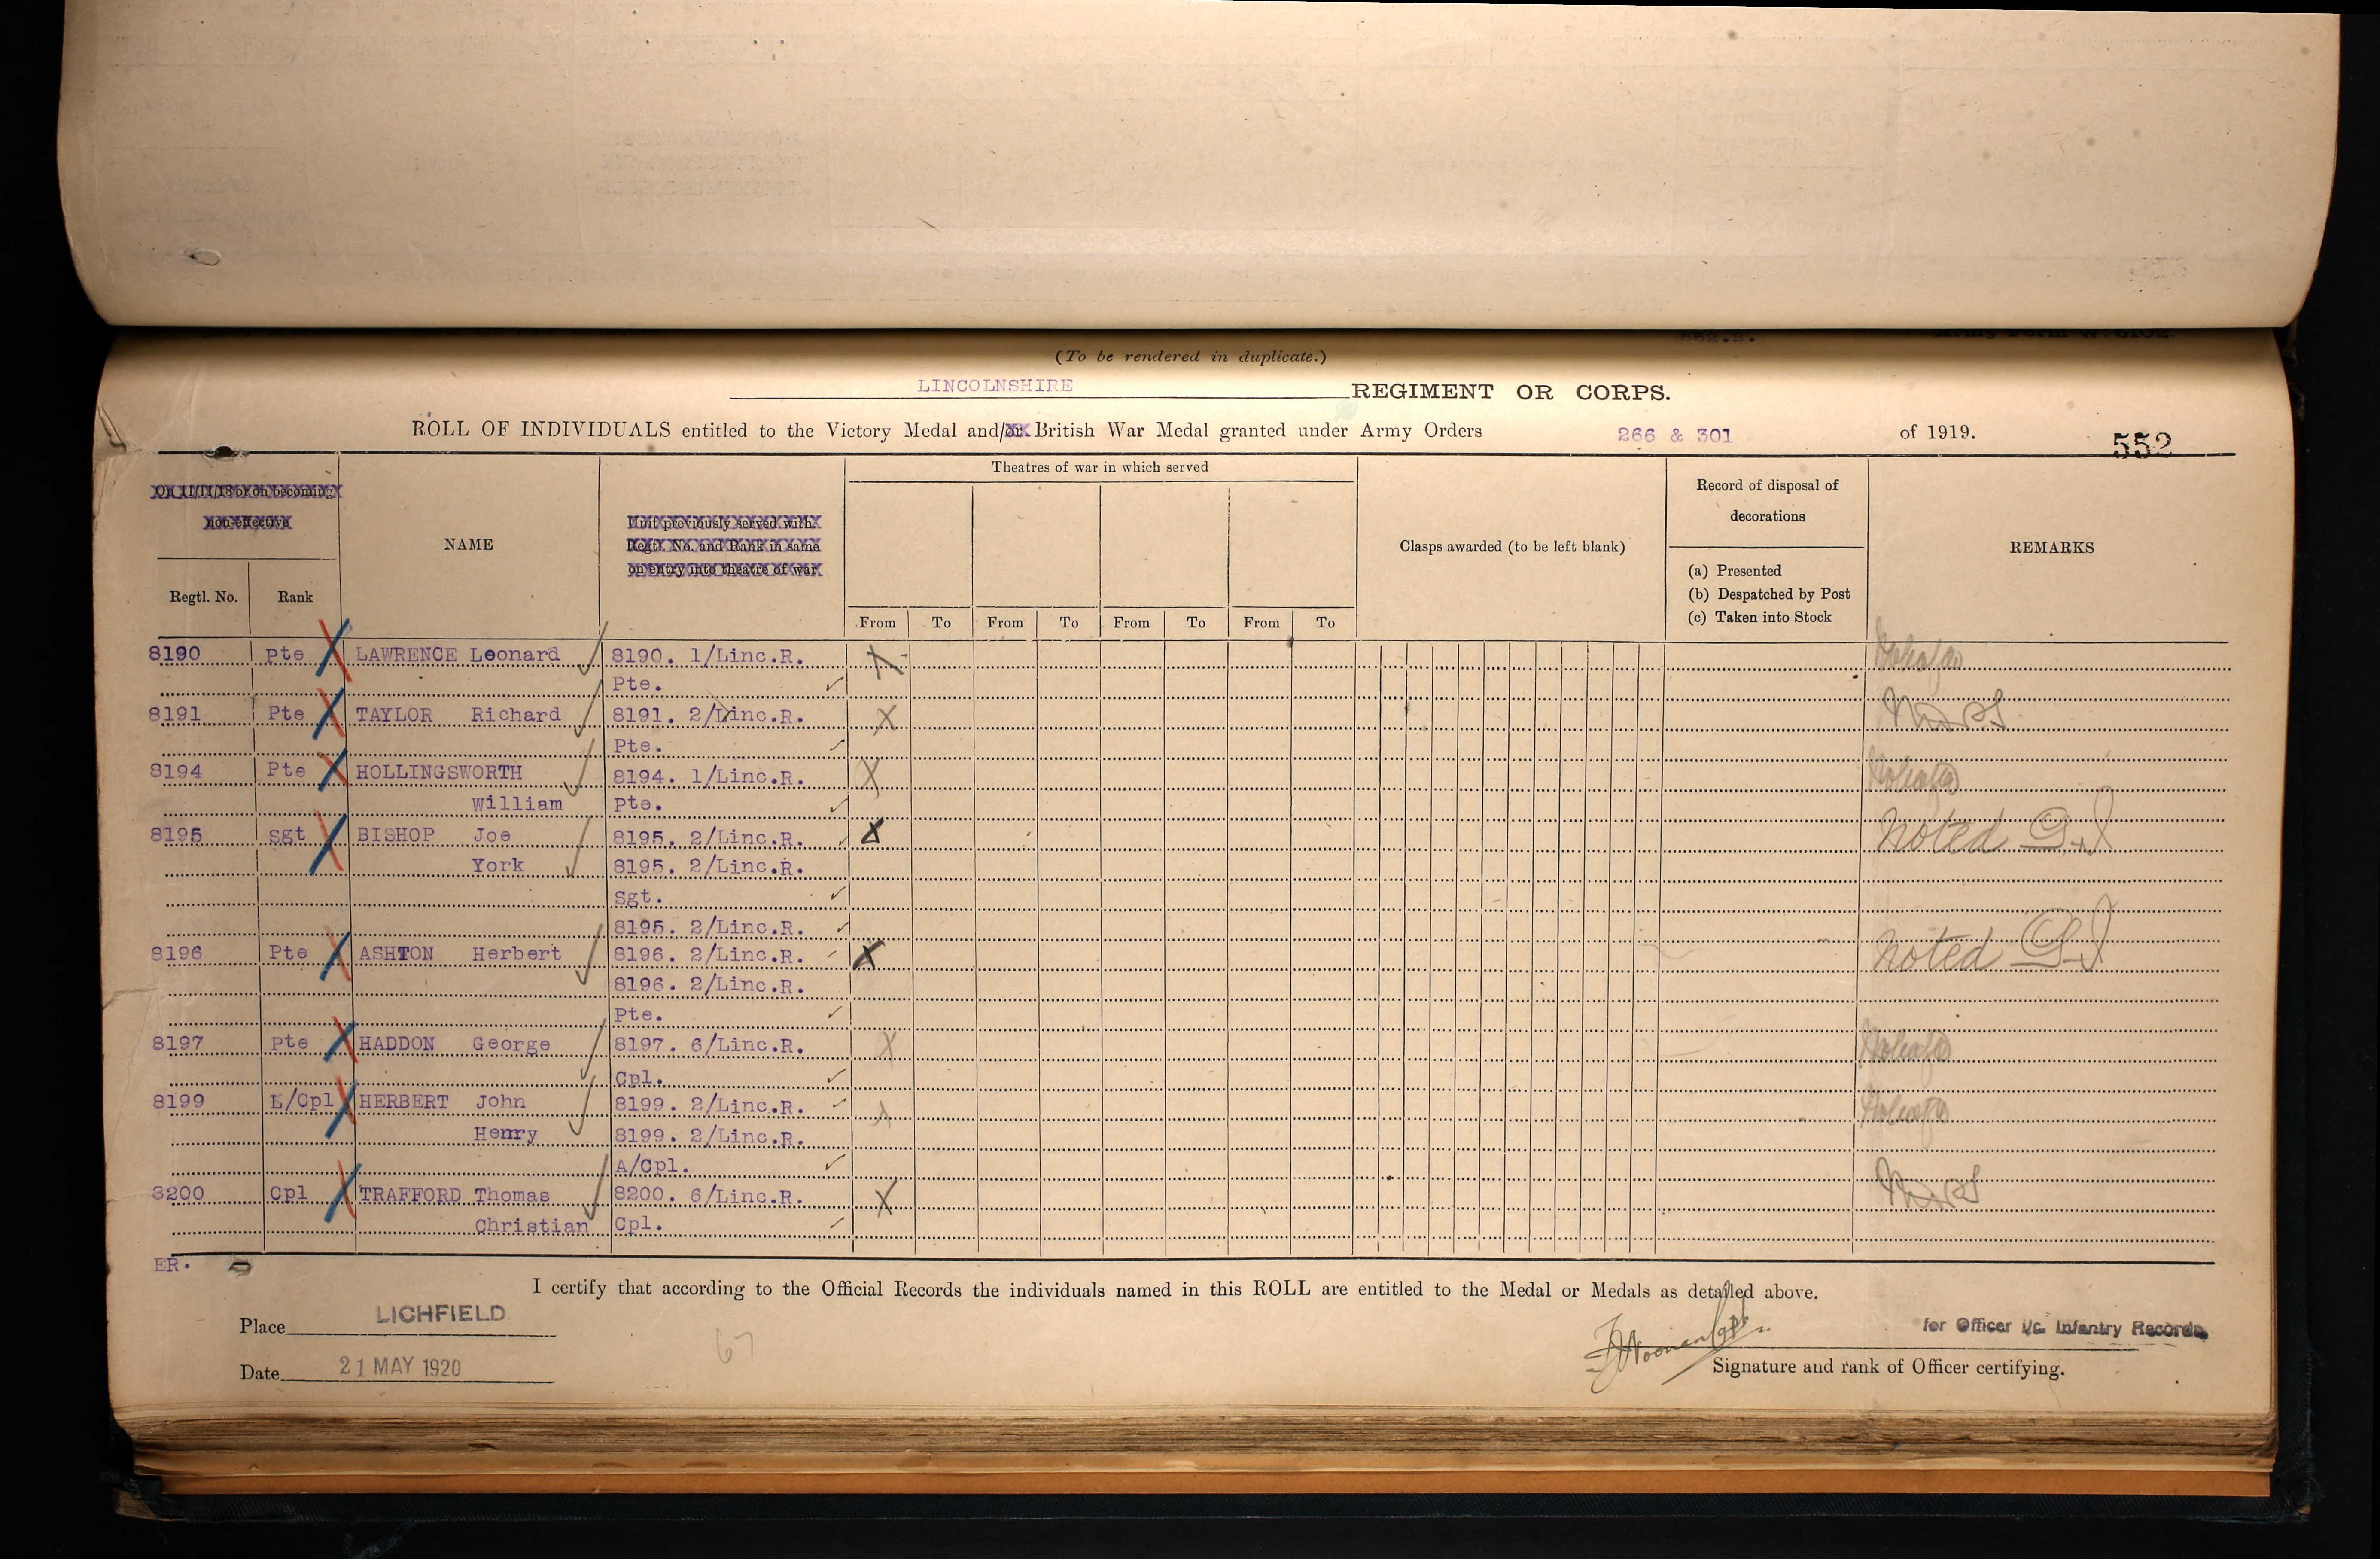 (To be rendered in duplicate.)
LINCOLNSHIRE REGIMENT OR CORPS.
ROLL OF INDIVIDUALS entitled to the Victory Medal and/or British War Medal granted under Army Orders 266 & 301 of 1919. 552
Theatres of war in which served
On 11/11/18 or on becoming
non-effective
Record of disposal of
decorations
Unit previously served with.
Regtl. No. and Rank in same
on entry into theatre of war.
NAME
Clasps awarded (to be left blank)
REMARKS
(a) Presented
(b) Despatched by Post
(c) Taken into Stock
Regtl. No. Rank
From To From To From To From To
8190 Pte X LAWRENCE Leonard 8190. 1/Linc.R. X
Pte.
8191 Pte X TAYLOR Richard 8191. 2/Linc.R. X
Pte.
8194 Pte X HOLLINGSWORTH 8194. 1/Linc.R. X
William Pte.
8195 Sgt X BISHOP Joe 8195. 2/Linc.R. X noted
York 8195. 2/Linc.R.
Sgt.
8195. 2/Linc.R.
8196 Pte X ASHTON Herbert 8196. 2/Linc.R. X noted
8196. 2/Linc.R.
Pte.
8197 Pte X HADDON George 8197. 6/Linc.R. X
Cpl.
8199 L/Cpl X HERBERT John 8199. 2/Linc.R. X
Henry 8199. 2/Linc.R.
A/Cpl.
8200 Cpl X TRAFFORD Thomas 8200. 6/Linc.R. X
Christian Cpl.
ER.
I certify that according to the Official Records the individuals named in this ROLL are entitled to the Medal or Medals as detailed above.
Place LICHFIELD
for Officer i/c. Infantry Records.
67
Date 21 MAY 1920
Signature and rank of Officer certifying.